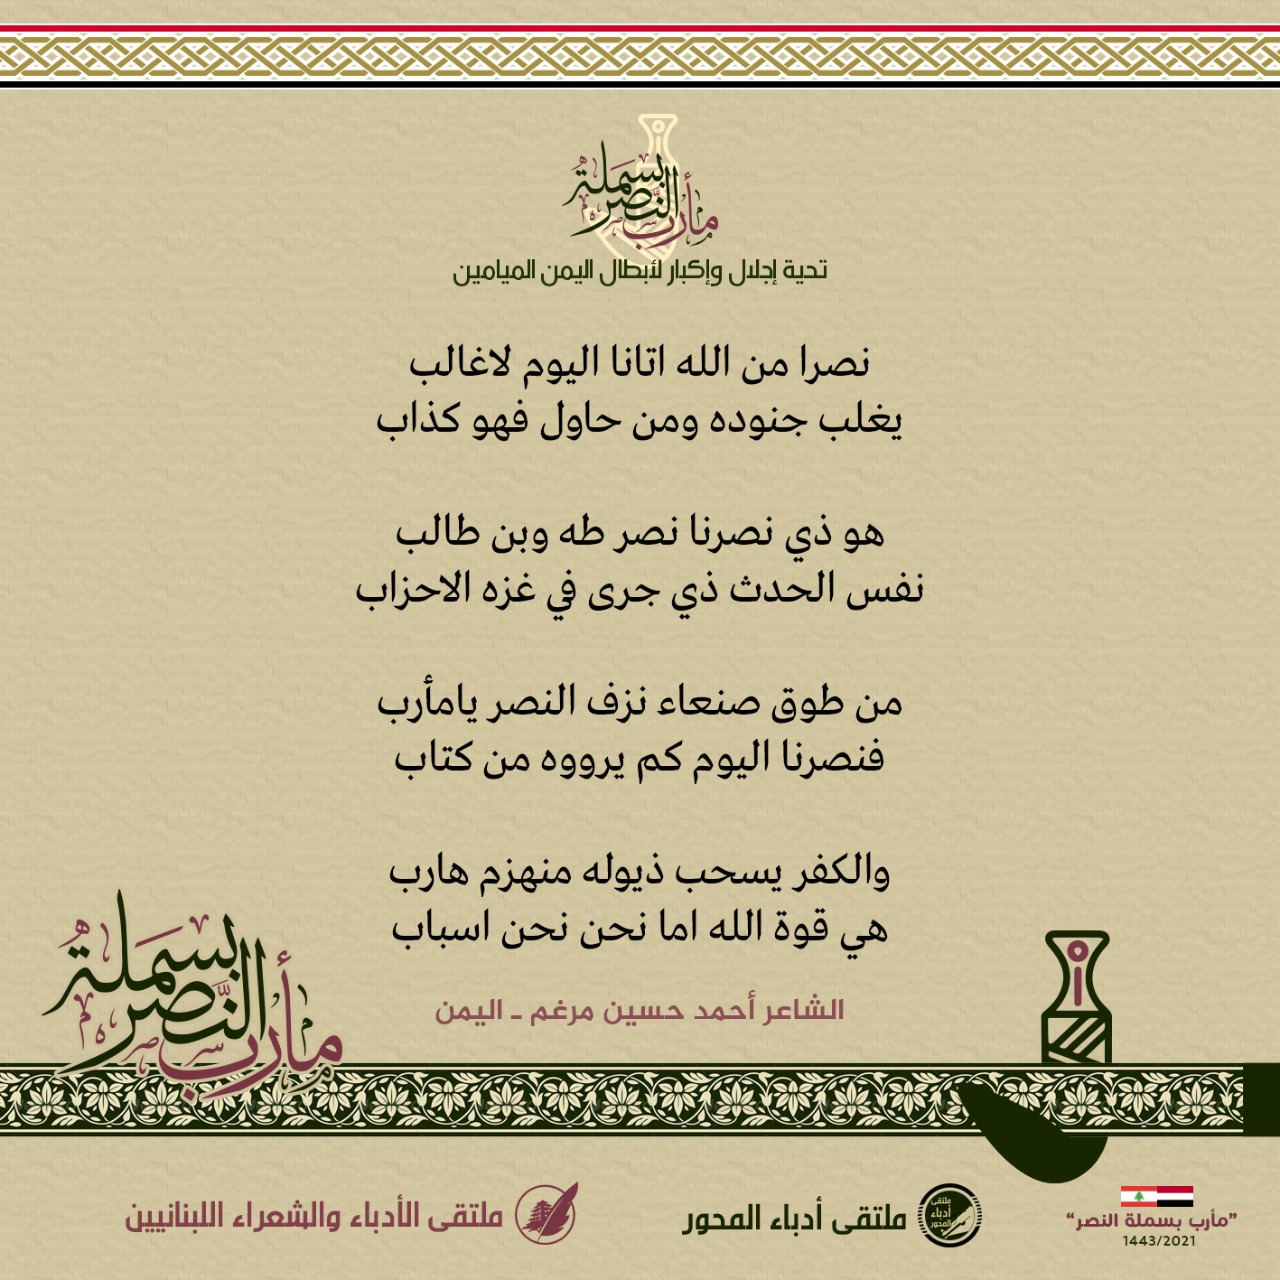 مأرب بسملة النصر
تحية إجلال وإكبار لأبطال اليمن الميامين
نصرا من الله اتانا اليوم لاغالب
يغلب جنوده ومن حاول فهو كذاب
هو ذي نصرنا نصر طه وبن طالب
نفس الحدث ذي جرى في غزه الاحزاب
من طوق صنعاء نزف النصر يامأرب
فنصرنا اليوم كم يرووه من كتاب
والكفر يسحب ذيوله منهزم هارب
هي قوة الله اما نحن نحن اسباب
الشاعر أحمد حسين مرغم ـ اليمن
مأرب بسملة النصر
”مأرب بسملة النصر“
1443/2021
ملتقى أدباء المحور
ملتقى أدباء المحور
ملتقى الأدباء والشعراء اللبنانيين